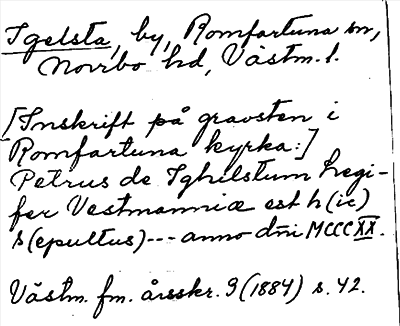 Igelsta, by, Romfartuna sn,
Norrbo hd, Västm. l.
[Inskrift på gravsten i
Romfartuna kyrka:]
Petrus de Ighilstum legi-
fer Vestmanniæ est h(ic)
s(epultus) --- anno dñi MCCCXX.
Västm. fm. årsskr. 3 (1884) s. 42.